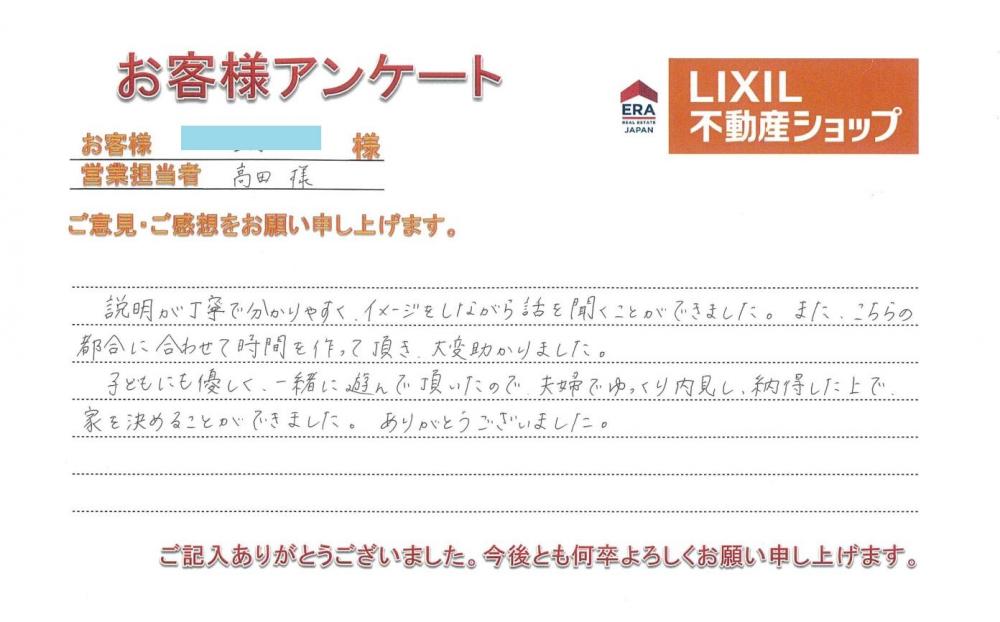 お客様アンケート
ERA
REAL ESTATE
JAPAN
LIXIL
不動産ショップ
お客様 様
営業担当者 高田 様
ご意見・ご感想をお願い申し上げます。
説明が丁寧で分かりやすく、イメージをしながら話を聞くことができました。また、こちらの
都合に合わせて時間を作って頂き、大変助かりました。
子どもにも優しく、一緒に遊んで頂いたので、夫婦でゆっくり内見し、納得した上で、
家を決めることができました。ありがとうございました。
ご記入ありがとうございました。今後とも何卒よろしくお願い申し上げます。